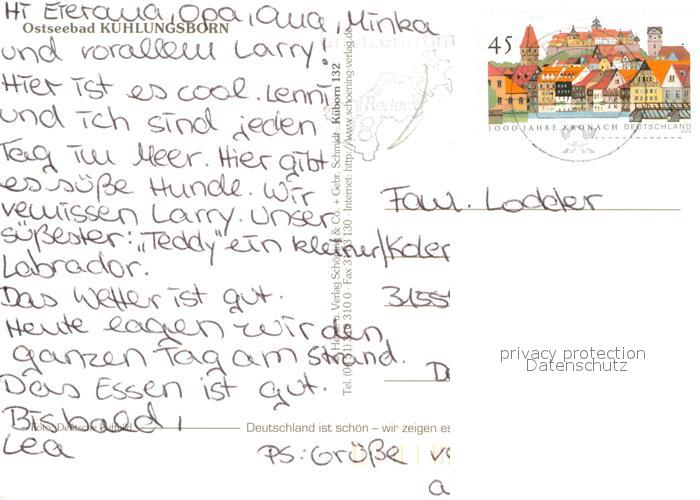 Hi Eierama, Opa, Oma, Minka
Ostseebad KÜHLUNGSBORN
und vorallem Larry!
Hier ist es cool. Lenni
und ich sind jeden
Tag im Meer. Hier gibt
es süße Hunde. Wir
vemissen Larry. Unser
süßester: „Teddy" ein kleiner
Labrador.
Das Wetter ist gut.
Heute lagen wir den
ganzen Tag am Strand.
Das Essen ist gut.
Bis bald,
Lea
PS: Größe
Deutschland ist schön – wir zeigen es
Verlag Schöning & Co. + Gebr. Schmidt · Küborn 132
310 0 · Fax 3 73 130 · Internet: http://www.schoening-verlag.de
45
1000 JAHRE KRONACH DEUTSCHLAND
Fam. Lodder
privacy protection
Datenschutz